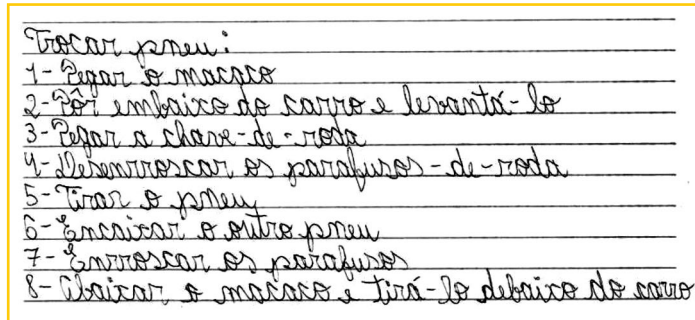 Trocar pneu:
1- Pegar o macaco
2- Pôr embaixo do carro e levantá-lo
3- Pegar a chave-de-roda
4- Desenrroscar os parafusos-de-roda
5- Tirar o pneu
6- Encaixar o outro pneu
7- Enrroscar os parafusos
8- Abaixar o macaco e tirá-lo debaixo do carro